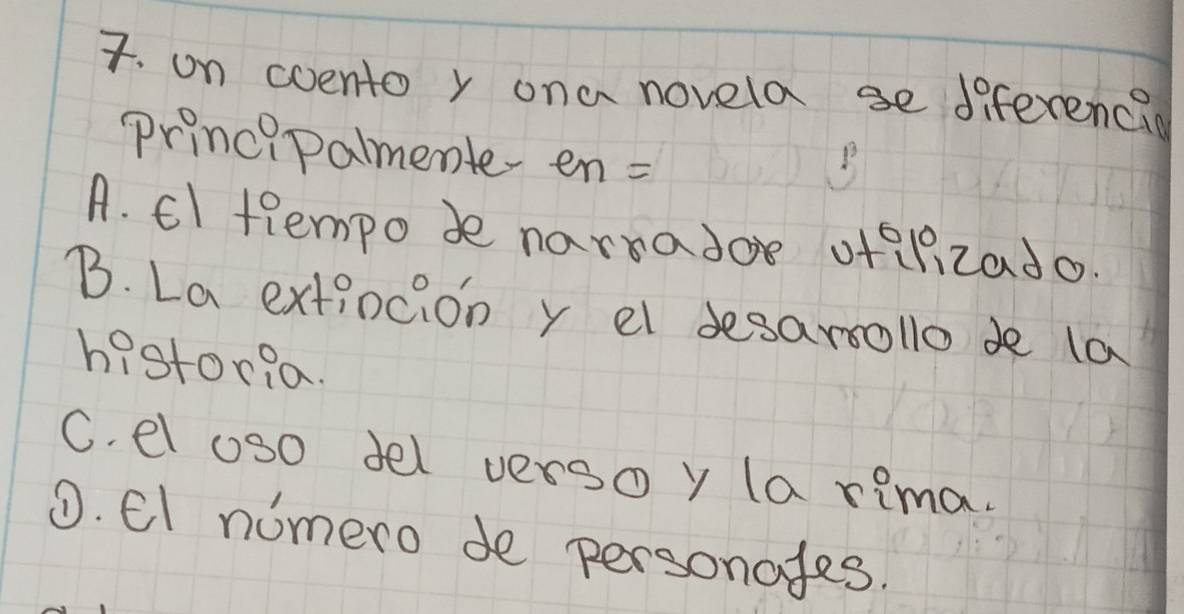 7. un cuento y una novela se diferencia
principalmente en =
A. El tiempo de narrador utilizado.
B. La extinción y el desarrollo de la
historia.
C. el uso del verso y la rima.
D. El número de personajes.